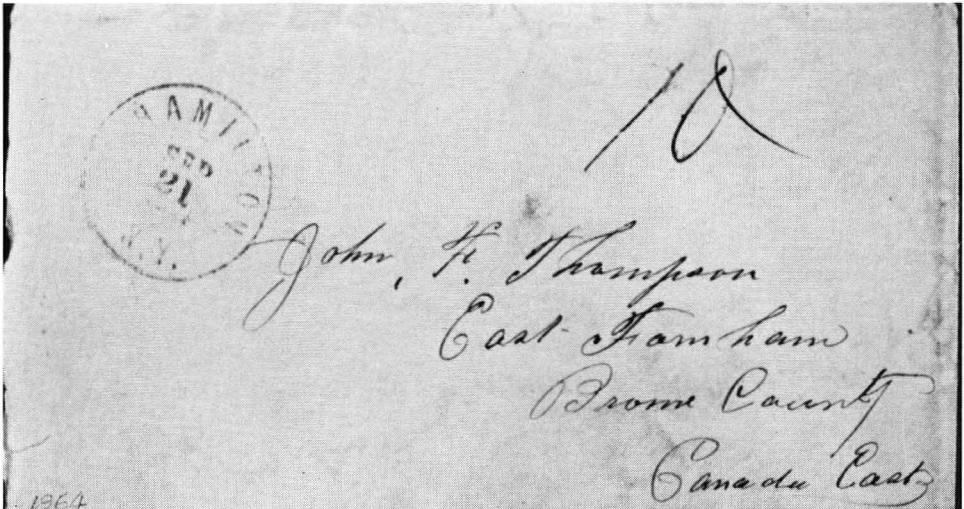 10
HAMILTON
SEP
21
N.Y.
John, F. Thompson
East Farnham
Brome County
Canada East
1964